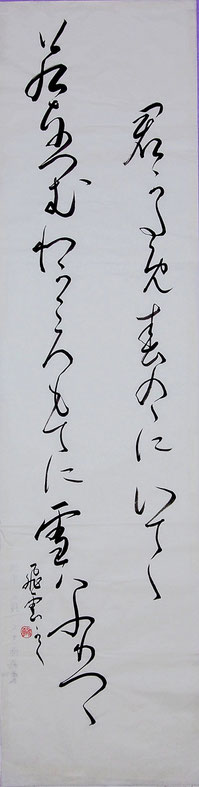 君かため春のゝにいてゝ
若なつむわかころもてに雪ハふりつゝ
飛雲